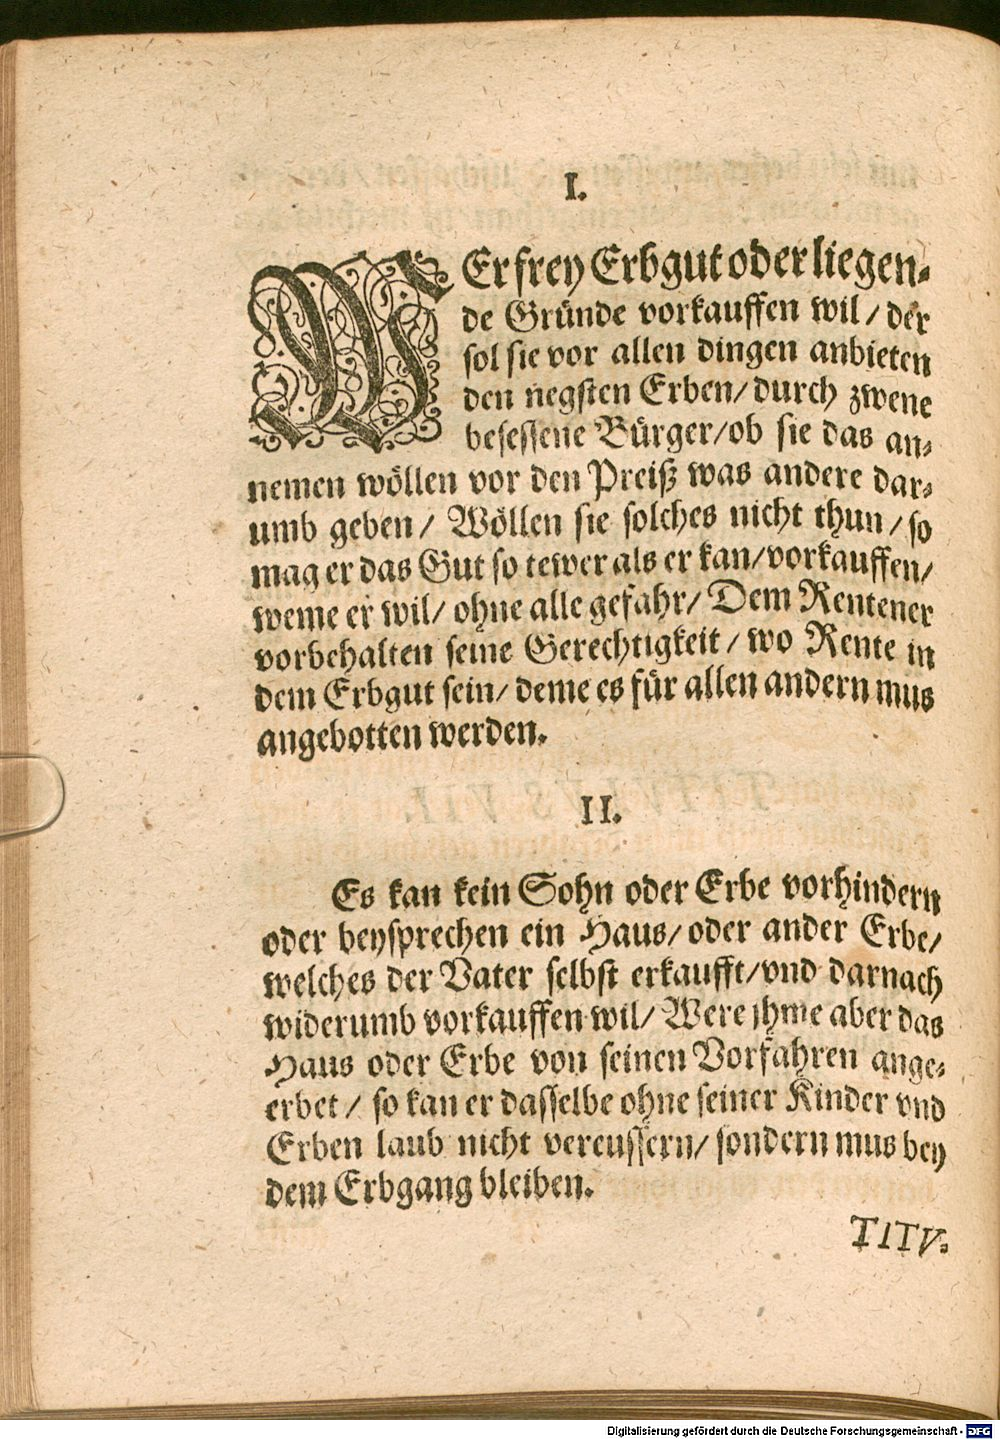 I.
WErfrey Erbgut oder liegen-
de Gründe vorkauffen wil / der
sol sie vor allen dingen anbieten
den negsten Erben / durch zwene
besessene Bürger / ob sie das an-
nemen wöllen vor den Preiß was andere dar-
umb geben / Wöllen sie solches nicht thun / so
mag er das Gut so tewer als er kan / vorkauffen /
weme er wil / ohne alle gefahr / Dem Rentener
vorbehalten seine Gerechtigkeit / wo Rente in
dem Erbgut sein / deme es für allen andern mus
angebotten werden.
II.
Es kan kein Sohn oder Erbe vorhindern
oder beysprechen ein Haus / oder ander Erbe /
welches der Vater selbst erkaufft / vnd darnach
widerumb vorkauffen wil / Were jhme aber das
Haus oder Erbe von seinen Vorfahren ange-
erbet / so kan er dasselbe ohne seiner Kinder vnd
Erben laub nicht vereussern / sondern mus bey
dem Erbgang bleiben.
TITV-
Digitalisierung gefördert durch die Deutsche Forschungsgemeinschaft - DFG